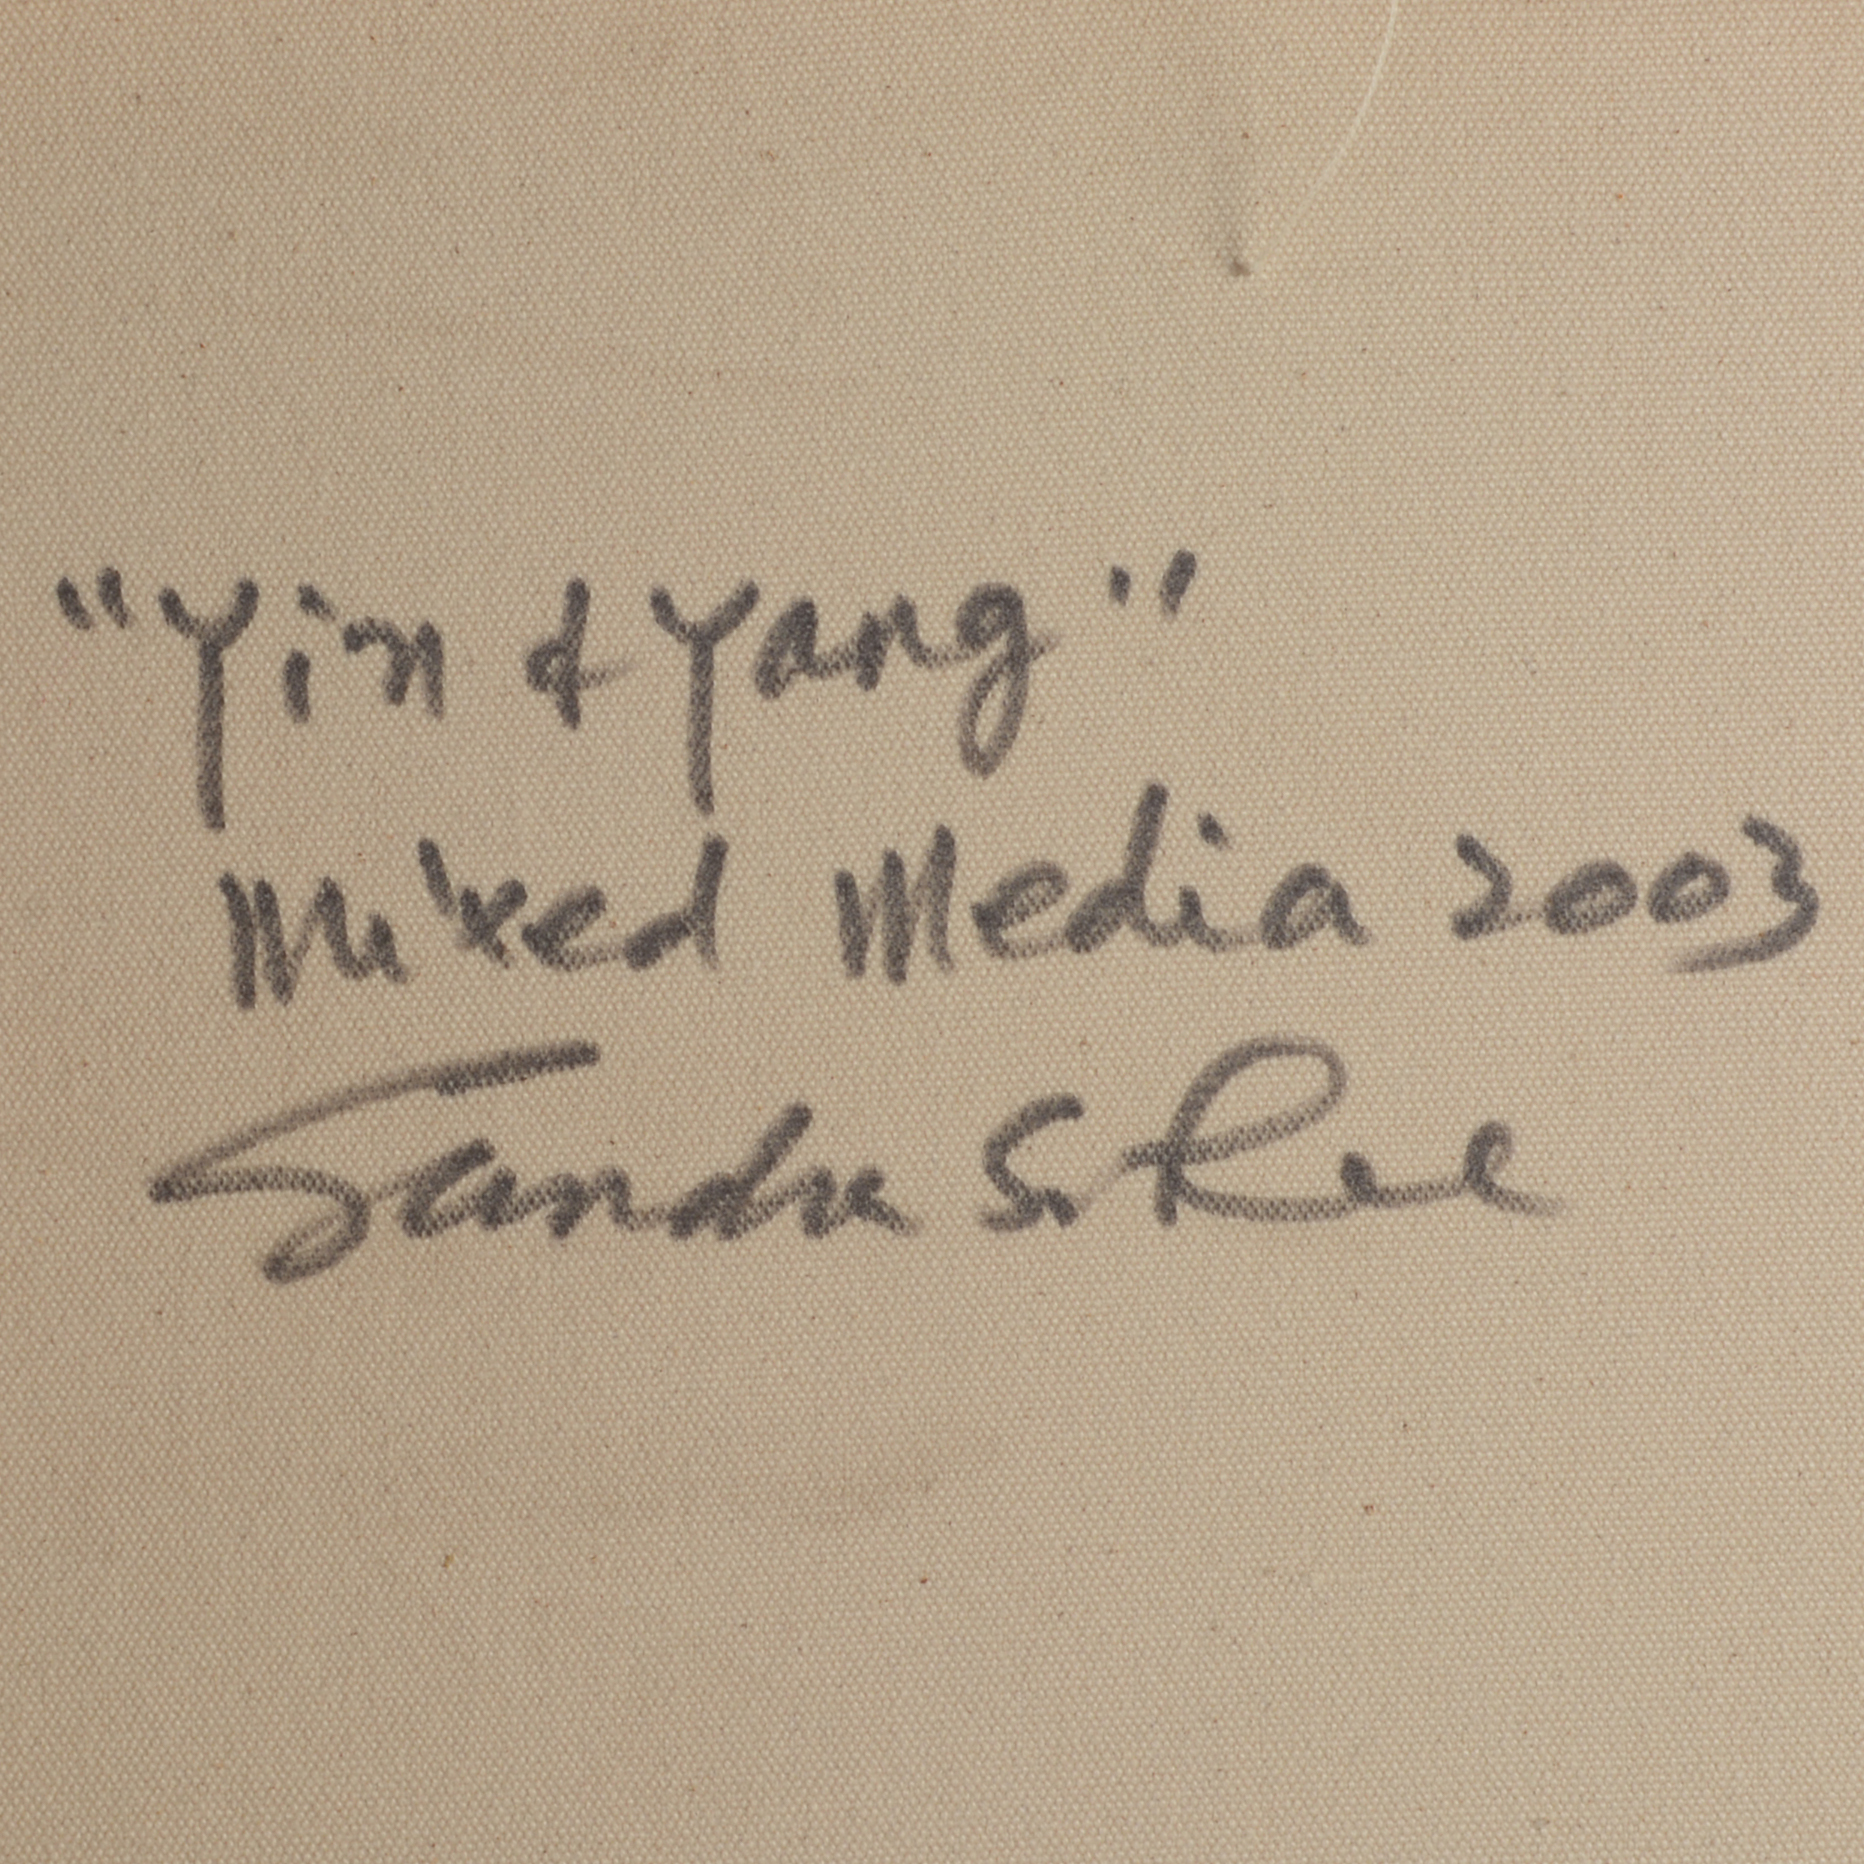 "Yin & Yang"
Mixed Media 2003
Sandra S. Ree